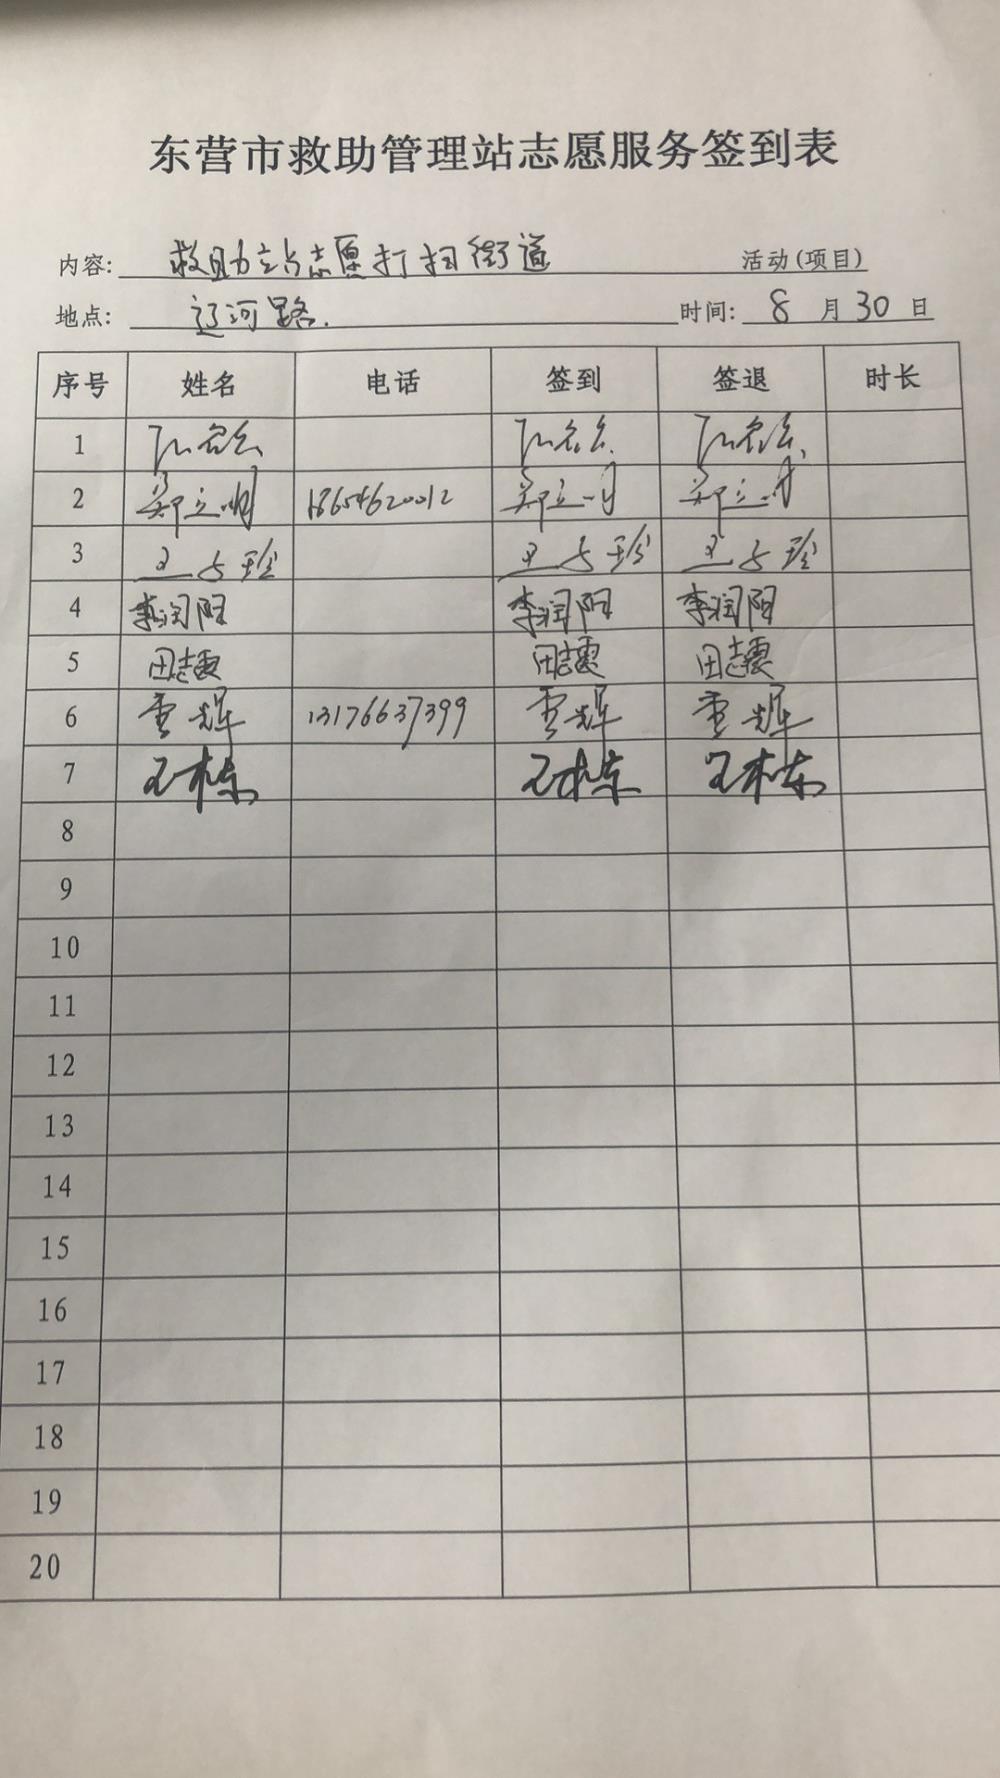 东营市救助管理站志愿服务签到表
内容: 救助站志愿打扫街道 活动(项目)
地点: 辽河路. 时间: 8 月 30 日
序号 姓名 电话 签到 签退 时长
1
2 郑立明 18654620012 郑立明 郑立明
3 王占珍 王占珍 王占珍
4 李润阳 李润阳 李润阳
5 田志震 田志震 田志震
6 重辉 13176637399 重辉 重辉
7 王栋 王栋 王栋
8
9
10
11
12
13
14
15
16
17
18
19
20